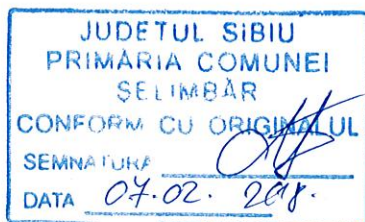 JUDEŢUL SIBIU
PRIMĂRIA COMUNEI
ŞELIMBĂR
CONFORM CU ORIGINALUL
SEMNATURA
DATA 07.02. 2018.